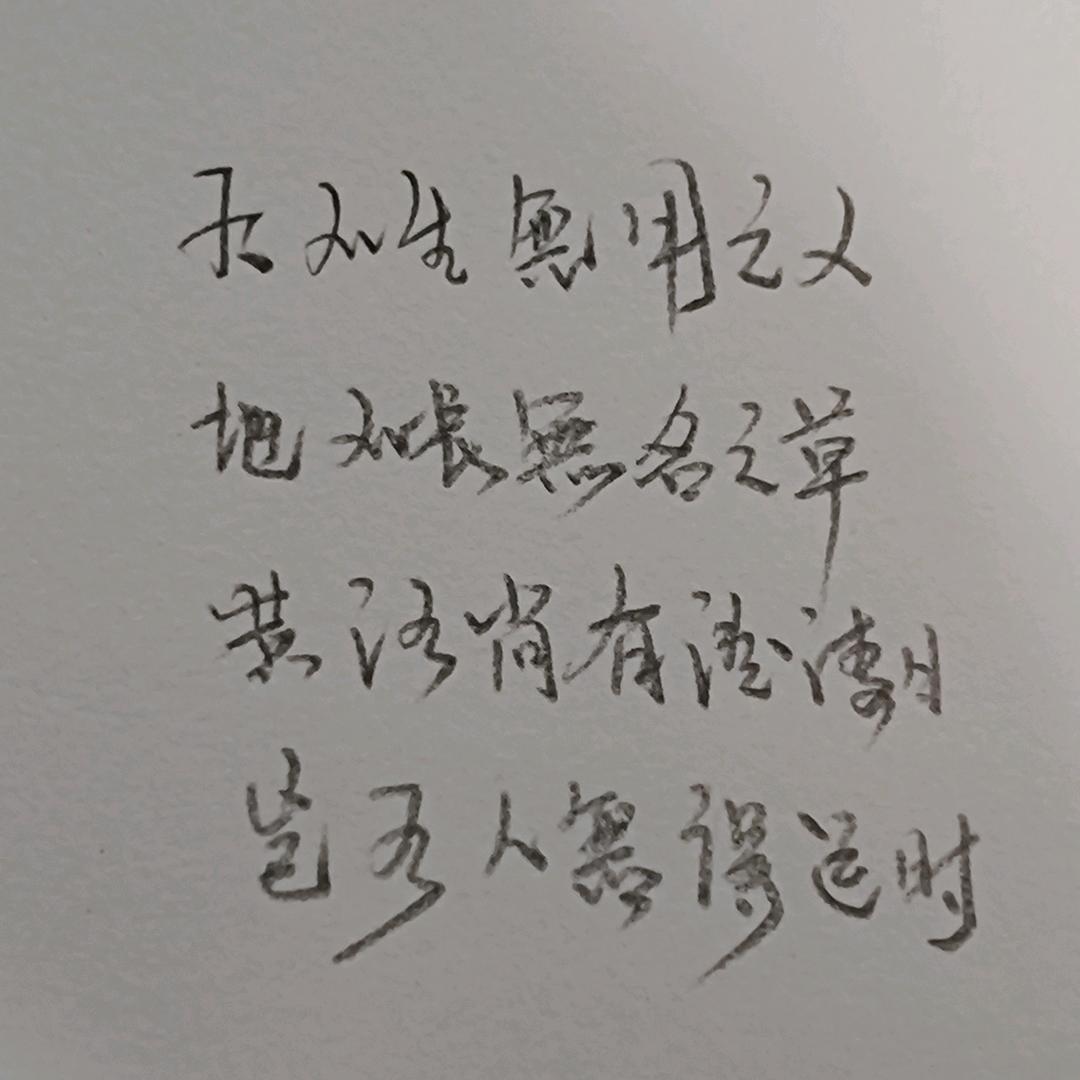 天不生無用之人
地不長無名之草
黄河尚有澄清日
岂可人無得运时